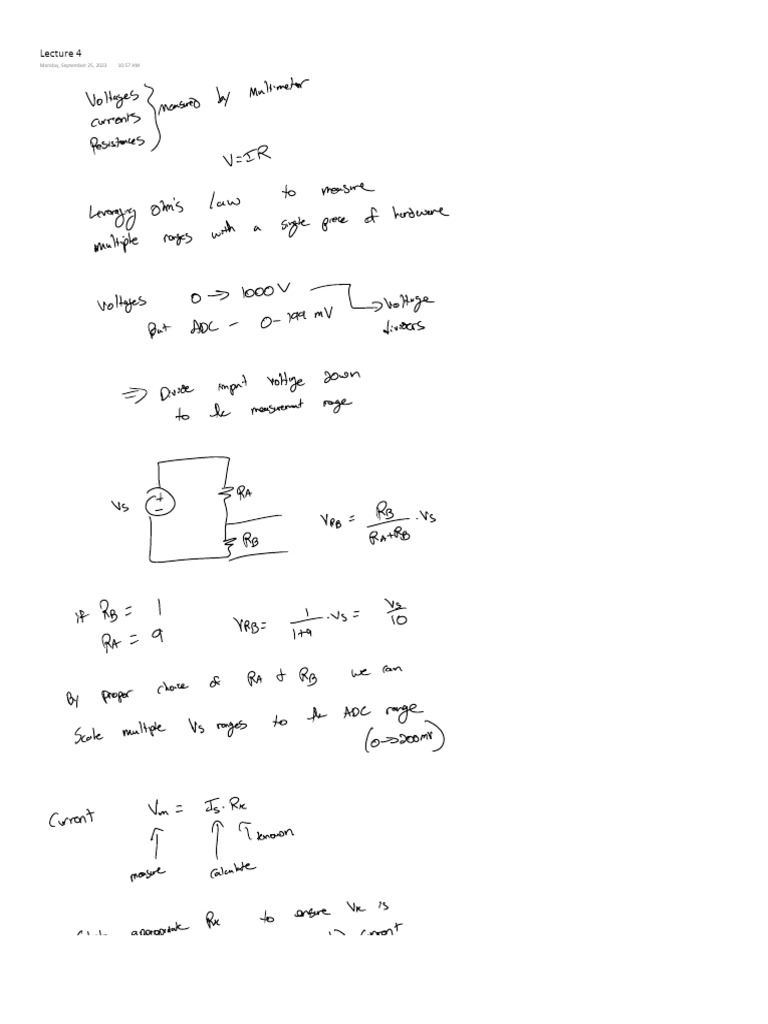 Lecture 4
Monday, September 25, 2023 10:57 AM
Voltages
currents
Resistances
measured by Multimeter
V=IR
Leveraging Ohm's law to measure
multiple ranges with a single piece of hardware
Voltages 0 → 1000 V
But ADC - 0-199 mV
→ Voltage
dividers
⇒ Divide input voltage down
to the measurement range
Vs
+
-
RA
RB
VRB = RB / (RA+RB) · Vs
if RB = 1
RA = 9
VRB = 1 / (1+9) · Vs = Vs / 10
By proper choice of RA & RB we can
Scale multiple Vs ranges to the ADC range
(0→200mV)
Current Vm = Is · Rx
measure
calculate
known
appropriate Rx to ensure Vx is
current